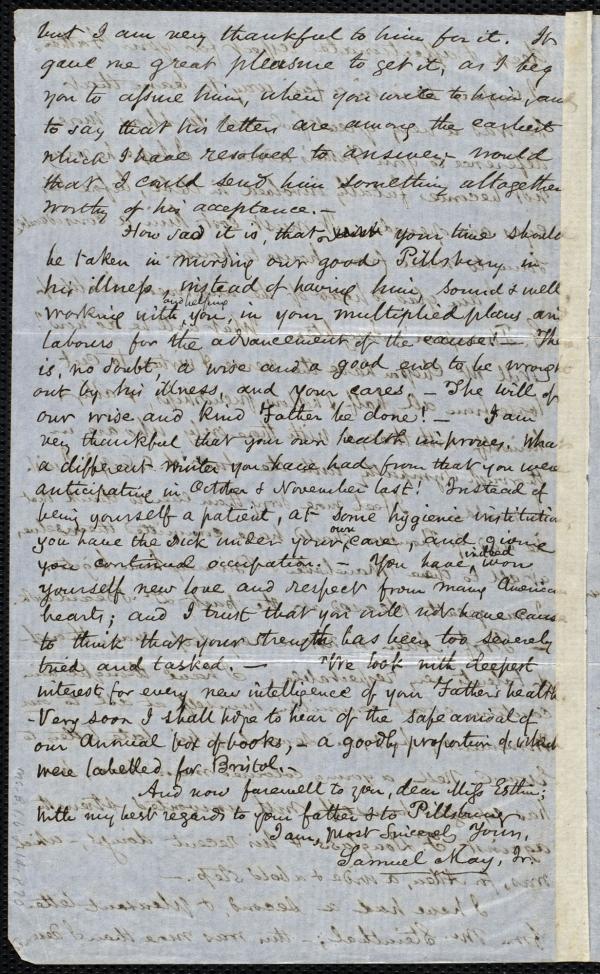 but I am very thankful to him for it. It
gave me great pleasure to get it, as I beg
you to assure him, when you write to him, and
to say that his letters are among the earliest
which I have resolved to answer; would
that I could send him something altogether
worthy of his acceptance. —
How sad it is, that your time should
be taken in nursing our good Pillsbury in
his illness, instead of having him sound & well
and helping
working with you, in your multiplied plans an
labours for the advancement of the cause! — The
is, no doubt a wise and a good end to be wrought
out by his illness, and your cares. — The will of
our wise and kind Father be done! — I am
very thankful that your own health improves. Wha
a different winter you have had from that you were
anticipating in October & November last! Instead of
being yourself a patient, at some hygienic institution
own
you have the sick under your care, and giving
you continual occupation. — You have, indeed won
yourself new love and respect from many America
hearts; and I trust that you will not have cause
to think that your strength has been too severely
tried and tasked. — We look with deepest
interest for every new intelligence of your Father's health
- Very soon I shall hope to hear of the safe arrival of
our Annual box of books, — a goodly proportion of which
were labelled for Bristol. —
And now farewell to you, dear Miss Esthu;
With my best regards to your father & to Pillsbury
I am, Most Sincerely Yours,
Samuel May, Jr.